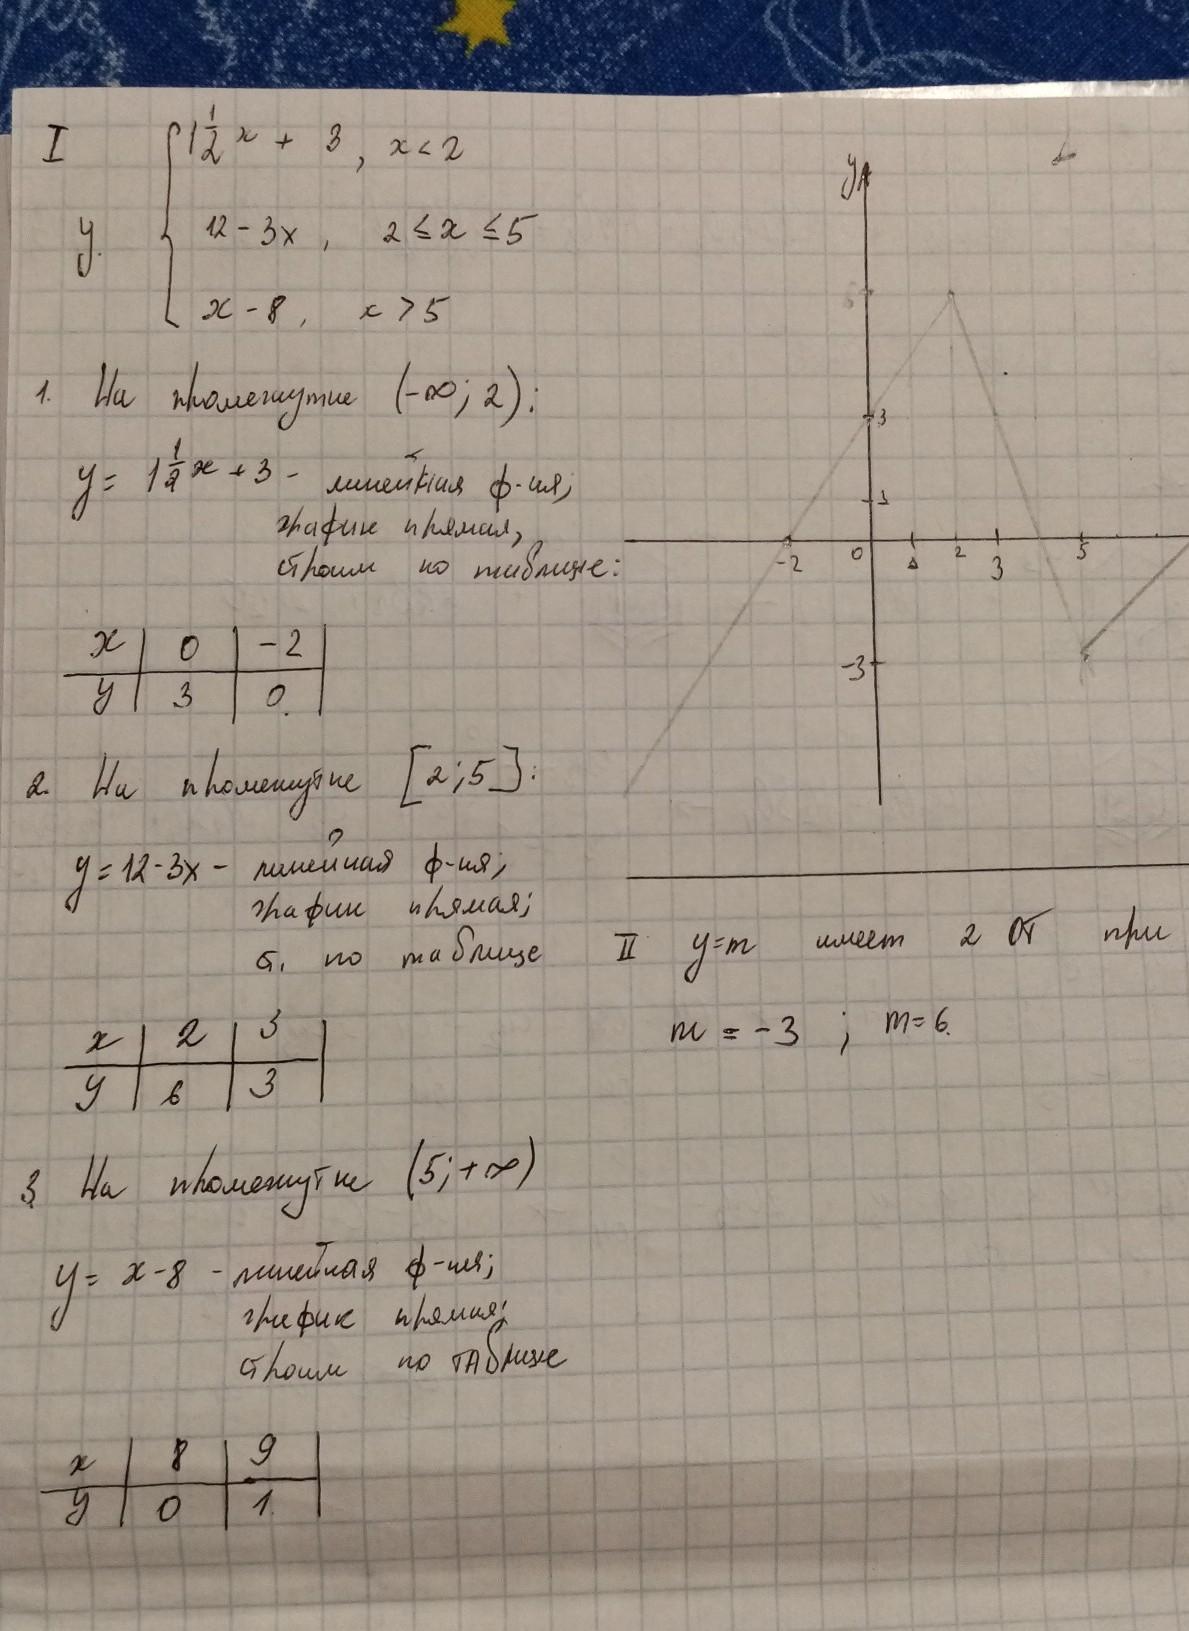 I
1 1/2 x + 3, x < 2
y
12 - 3x, 2 ≤ x ≤ 5
x - 8, x > 5
1. На промежутке (-∞; 2):
y = 1 1/2 x + 3 - линейная ф-ия;
график прямая,
строим по таблице:
x | 0 | -2
y | 3 | 0
2. На промежутке [2; 5]:
y = 12 - 3x - линейная ф-ия;
график прямая;
ст. по таблице
x | 2 | 3
y | 6 | 3
3 На промежутке (5; +∞)
y = x - 8 - линейная ф-ия;
график прямая;
строим по таблице
x | 8 | 9
y | 0 | 1
y
6
3
1
-2 0 1 2 3 5
-3
II y=m имеет 2 ОТ при
m = -3 ; m = 6.